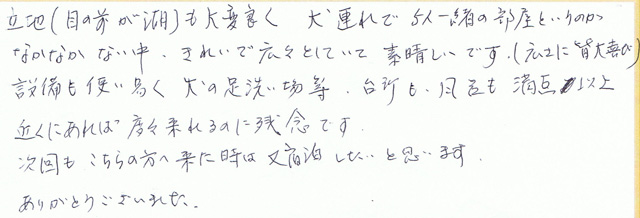 立地(目の前が湖)も大変良く 犬連れで5人一緒の部屋というのが
なかなかない中、きれいで広々としていて 素晴しいです。(広さに皆大喜び)
設備も使い易く 犬の足洗い場等、台所も、風呂も 満点以上
近くにあれば 度々来れるのに残念です。
次回も こちらの方へ来た時は 又宿泊したいと思います。
ありがとうございました。